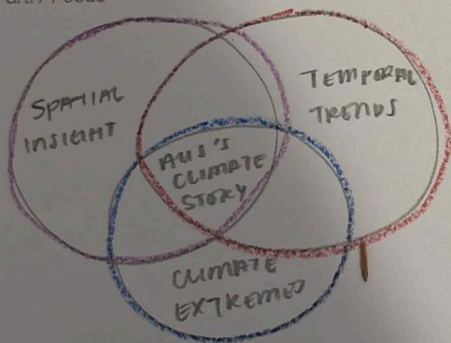 SPATIAL
INSIGHT
TEMPORAL
TRENDS
AUS'S
CLIMATE
STORY
CLIMATE
EXTREMES